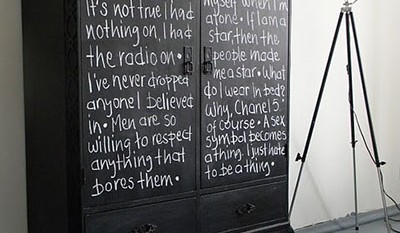 It's not true I had
nothing on, I had
the radio on •
I've never dropped
anyone I believed
in • Men are so
willing to respect
anything that
bores them •
myself when I'm
alone • If I am a
star, then the
people made
me a star • What
do I wear in bed?
Why, Chanel 5
of course • A sex
symbol becomes
a thing. I just hate
to be a thing •